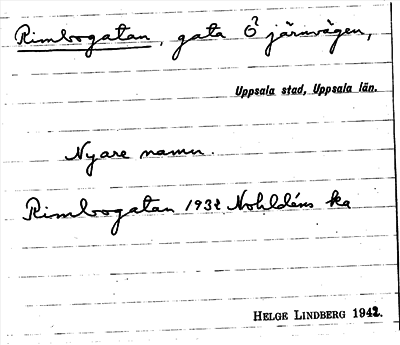 Rimbogatan, gata Ö järnvägen,
Uppsala stad, Uppsala län.
Nyare namn.
Rimbogatan 1932 Nohldéns ka
HELGE LINDBERG 1942.